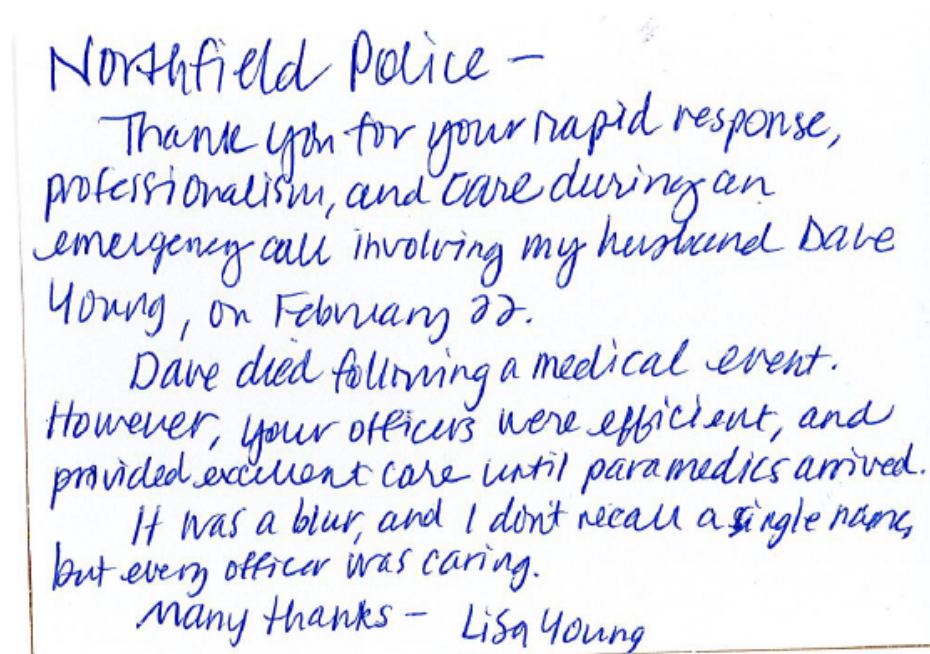 Northfield Police –
Thank you for your rapid response,
professionalism, and care during an
emergency call involving my husband Dave
Young, on February 22.
Dave died following a medical event.
However, your officers were efficient, and
provided excellent care until paramedics arrived.
It was a blur, and I don't recall a single name,
but every officer was caring.
Many thanks – Lisa Young